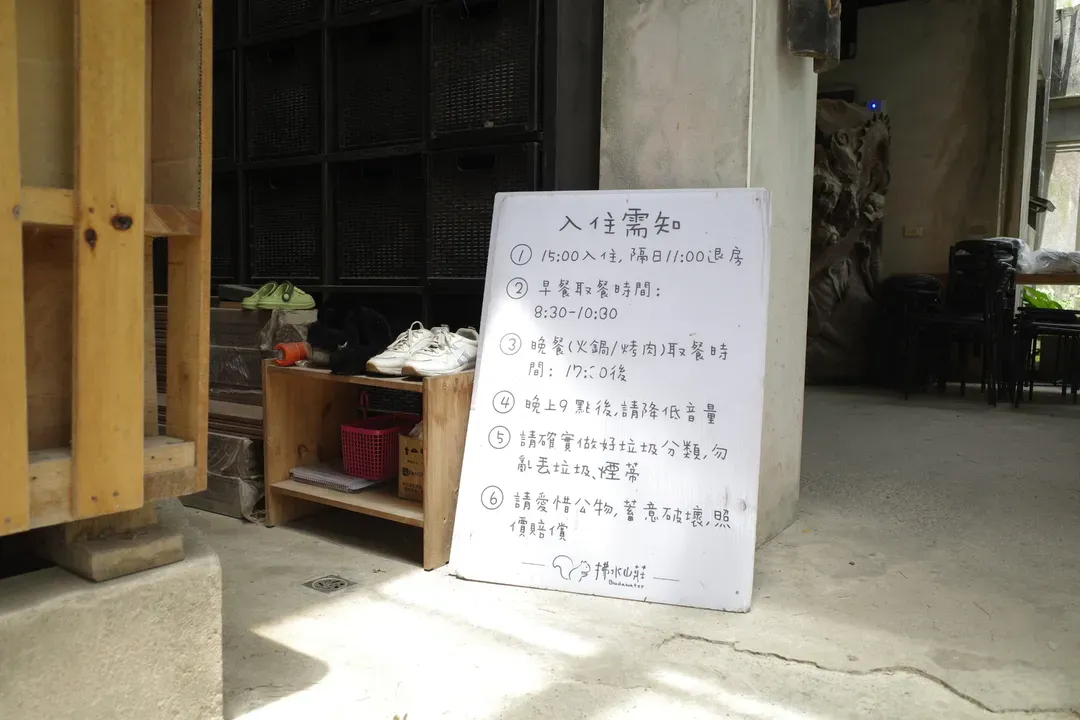 入住需知
① 15:00入住, 隔日11:00退房
② 早餐取餐時間:
8:30-10:30
③ 晚餐(火鍋/烤肉)取餐時
間: 17:30後
④ 晚上9點後,請降低音量
⑤ 請確實做好垃圾分類,勿
亂丟垃圾、煙蒂
⑥ 請愛惜公物,蓄意破壞,照
價賠償
山莊